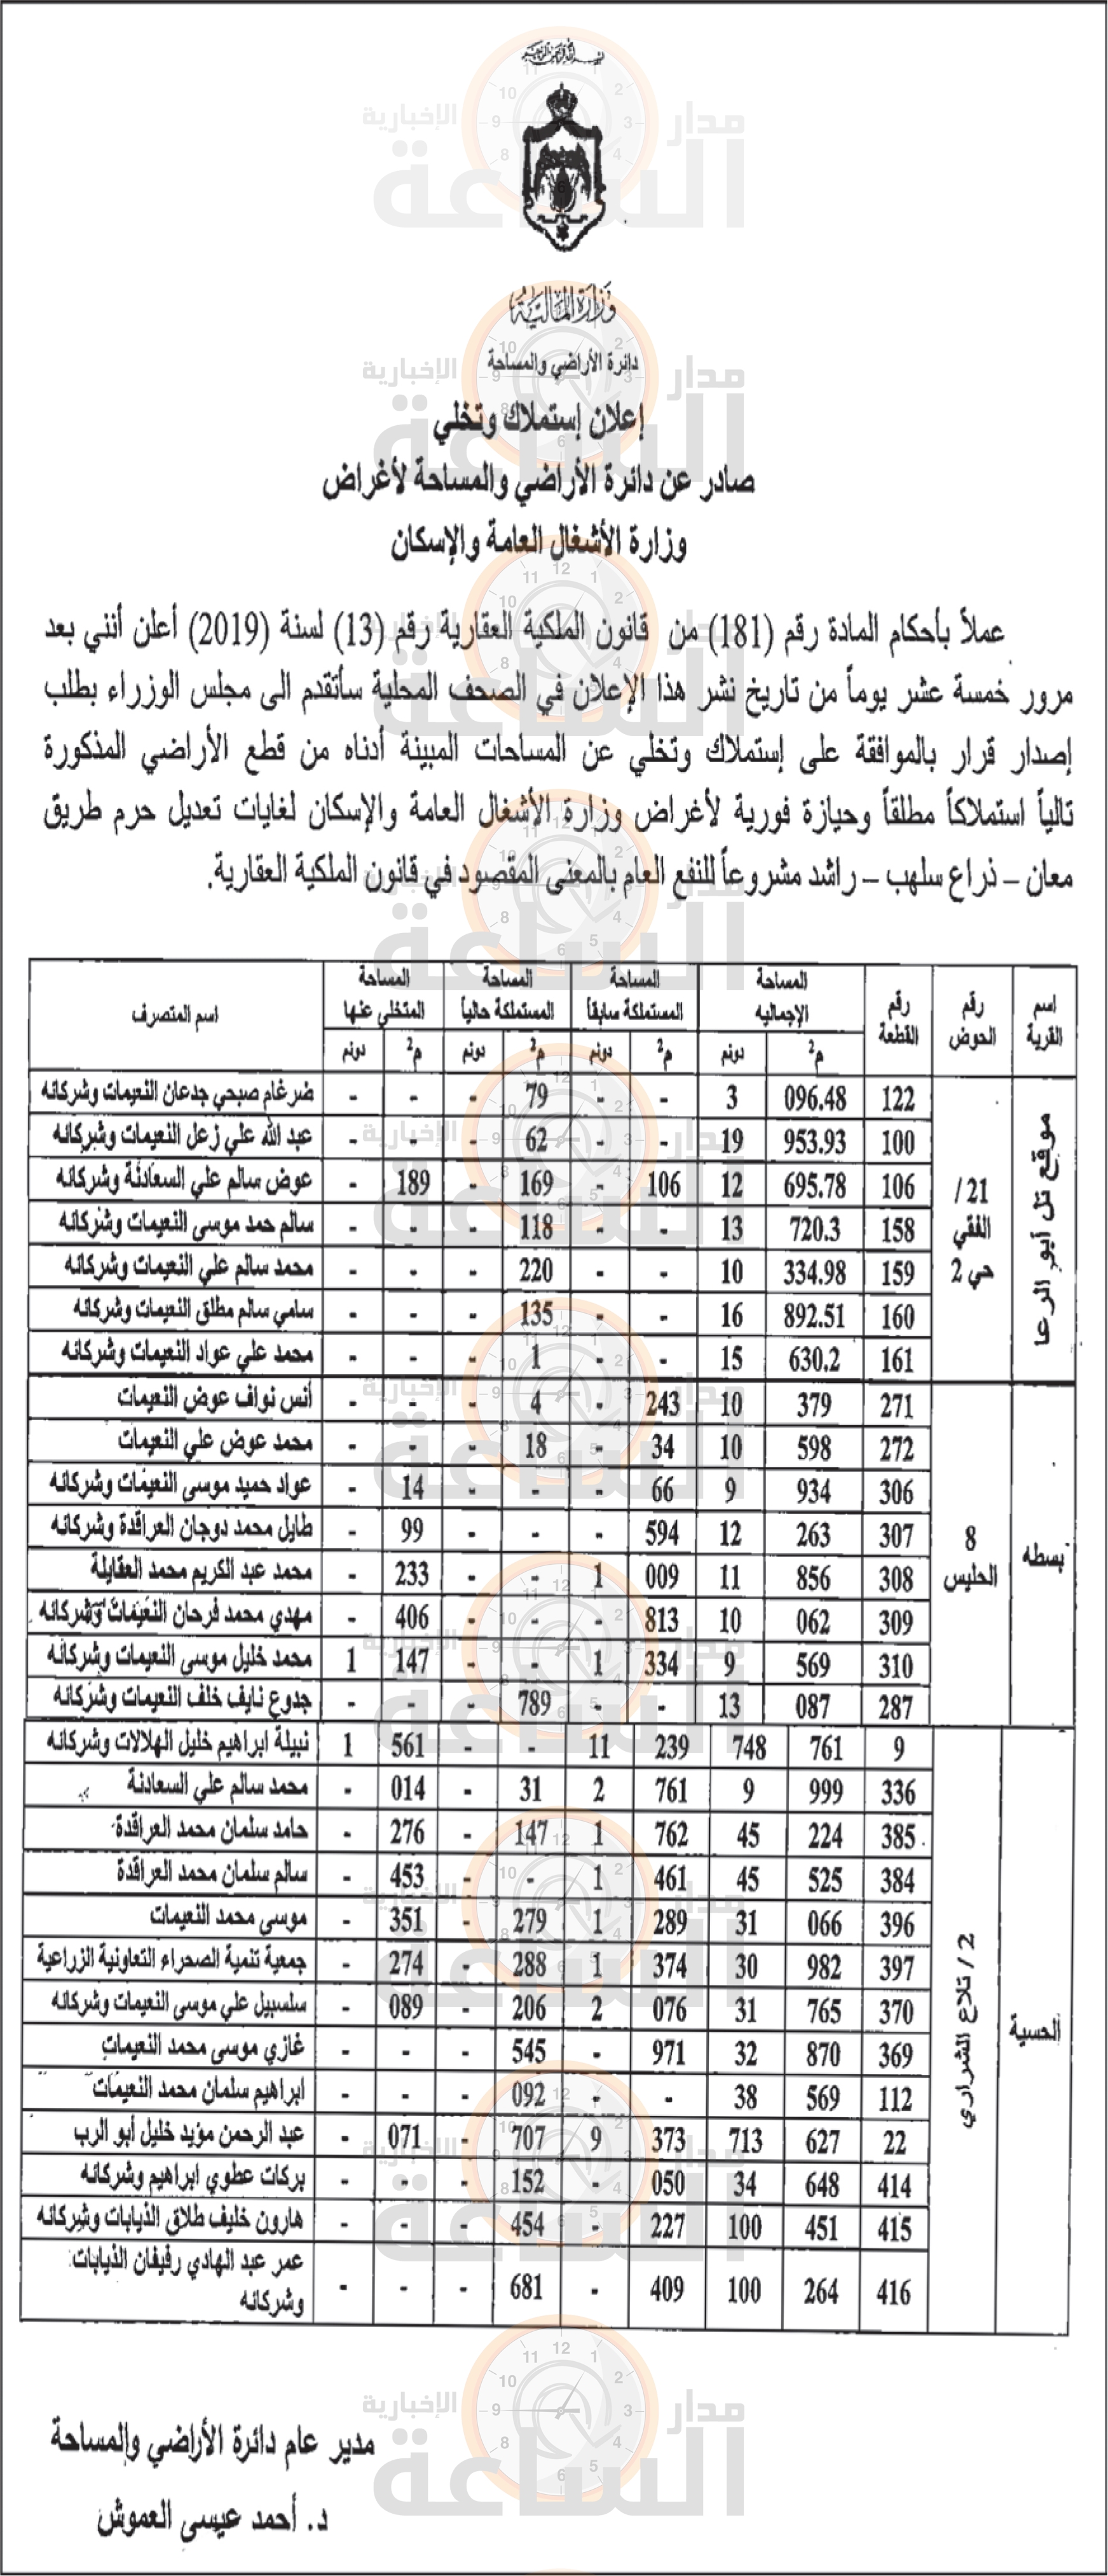 بسم الله الرحمن الرحيم
وزارة المالية
دائرة الأراضي والمساحة
إعلان إستملاك وتخلي
صادر عن دائرة الأراضي والمساحة لأغراض
وزارة الأشغال العامة والإسكان
عملاً بأحكام المادة رقم (181) من قانون الملكية العقارية رقم (13) لسنة (2019) أعلن أنني بعد
مرور خمسة عشر يوماً من تاريخ نشر هذا الإعلان في الصحف المحلية سأتقدم الى مجلس الوزراء بطلب
إصدار قرار بالموافقة على إستملاك وتخلي عن المساحات المبينة أدناه من قطع الأراضي المذكورة
تالياً استملاكاً مطلقاً وحيازة فورية لأغراض وزارة الأشغال العامة والإسكان لغايات تعديل حرم طريق
معان – ذراع سلهب – راشد مشروعاً للنفع العام بالمعنى المقصود في قانون الملكية العقارية.
اسم القرية | رقم الحوض | رقم القطعة | المساحة الإجماليه | المساحة المستملكة سابقاً | المساحة المستملكة حالياً | المساحة المتخلي عنها | اسم المتصرف
م2 | دونم | م2 | دونم | م2 | دونم | م2 | دونم
موقع تل أبو الرعا | 21 / الفقي حي 2
122 | 096.48 | 3 | - | - | 79 | - | - | - | ضرغام صبحي جدعان النعيمات وشركائه
100 | 953.93 | 19 | - | - | 62 | - | - | - | عبد الله علي زعل النعيمات وشركائه
106 | 695.78 | 12 | 106 | - | 169 | - | 189 | - | عوض سالم علي السعادنة وشركائه
158 | 720.3 | 13 | - | - | 118 | - | - | - | سالم حمد موسى النعيمات وشركائه
159 | 334.98 | 10 | - | - | 220 | - | - | - | محمد سالم علي النعيمات وشركائه
160 | 892.51 | 16 | - | - | 135 | - | - | - | سامي سالم مطلق النعيمات وشركائه
161 | 630.2 | 15 | - | - | 1 | - | - | - | محمد علي عواد النعيمات وشركائه
بسطه | 8 الحليس
271 | 379 | 10 | 243 | - | 4 | - | - | - | أنس نواف عوض النعيمات
272 | 598 | 10 | 34 | - | 18 | - | - | - | محمد عوض علي النعيمات
306 | 934 | 9 | 66 | - | - | - | 14 | - | عواد حميد موسى النعيمات وشركائه
307 | 263 | 12 | 594 | - | - | - | 99 | - | طايل محمد دوجان العراقدة وشركائه
308 | 856 | 11 | 009 | 1 | - | - | 233 | - | محمد عبد الكريم محمد العقايلة
309 | 062 | 10 | 813 | - | - | - | 406 | - | مهدي محمد فرحان النعيمات وشركائه
310 | 569 | 9 | 334 | 1 | - | - | 147 | 1 | محمد خليل موسى النعيمات وشركائه
287 | 087 | 13 | - | - | 789 | - | - | - | جدوع نايف خلف النعيمات وشركائه
الحسية | 2 / تلاع الشراري
9 | 761 | 748 | 239 | 11 | - | - | 561 | 1 | نبيلة ابراهيم خليل الهلالات وشركائه
336 | 999 | 9 | 761 | 2 | 31 | - | 014 | - | محمد سالم علي السعادنة
385 | 224 | 45 | 762 | 1 | 147 | - | 276 | - | حامد سلمان محمد العراقدة
384 | 525 | 45 | 461 | 1 | - | - | 453 | - | سالم سلمان محمد العراقدة
396 | 066 | 31 | 289 | 1 | 279 | - | 351 | - | موسى محمد النعيمات
397 | 982 | 30 | 374 | 1 | 288 | - | 274 | - | جمعية تنمية الصحراء التعاونية الزراعية
370 | 765 | 31 | 076 | 2 | 206 | - | 089 | - | سلسبيل علي موسى النعيمات وشركائه
369 | 870 | 32 | 971 | - | 545 | - | - | - | غازي موسى محمد النعيمات
112 | 569 | 38 | - | - | 092 | - | - | - | ابراهيم سلمان محمد النعيمات
22 | 627 | 713 | 373 | 9 | 707 | - | 071 | - | عبد الرحمن مؤيد خليل أبو الرب
414 | 648 | 34 | 050 | - | 152 | - | - | - | بركات عطوي ابراهيم وشركائه
415 | 451 | 100 | 227 | - | 454 | - | - | - | هارون خليف طلاق الذيابات وشركائه
416 | 264 | 100 | 409 | - | 681 | - | - | - | عمر عبد الهادي رفيفان الذيابات وشركائه
مدير عام دائرة الأراضي والمساحة
د. أحمد عيسى العموش
مدار الساعة الإخبارية